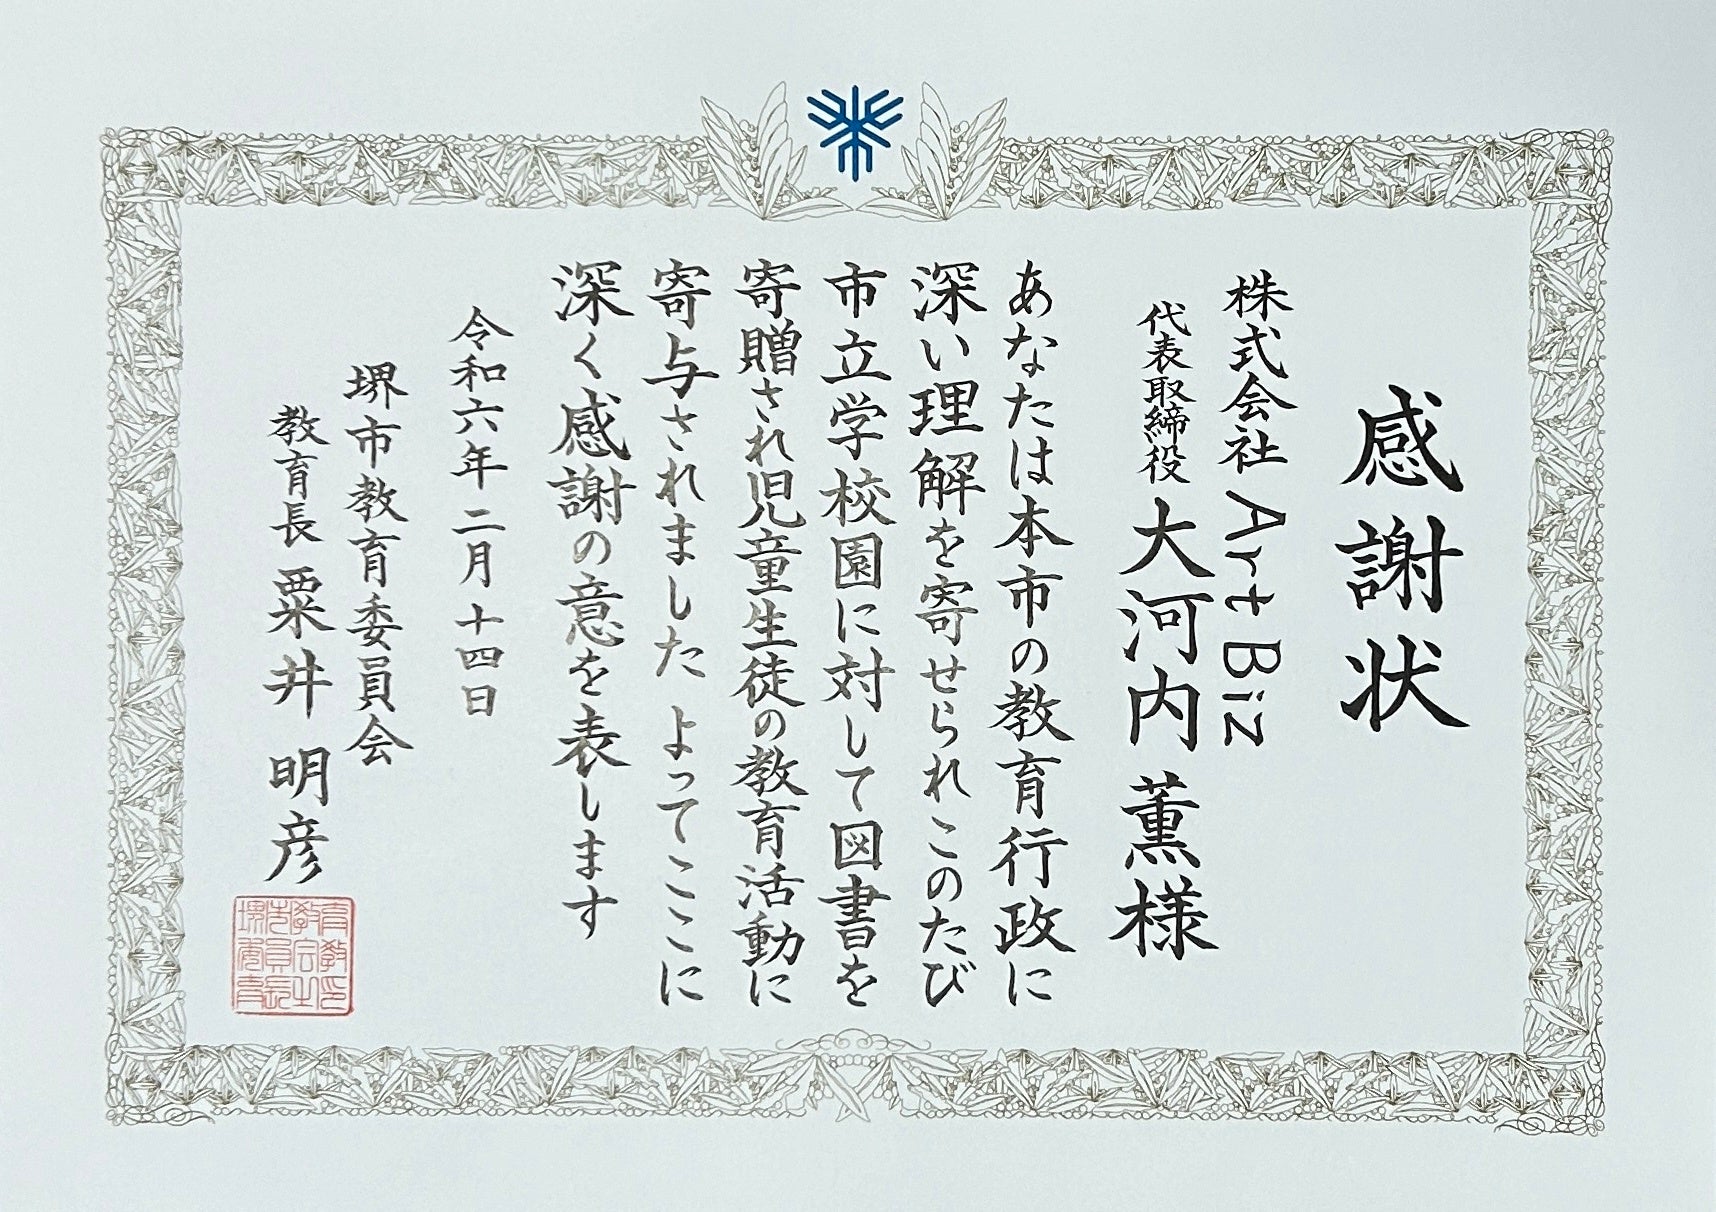 感謝状
株式会社 Art Biz
代表取締役 大河内 薫 様
あなたは本市の教育行政に
深い理解を寄せられこのたび
市立学校園に対して図書を
寄贈され児童生徒の教育活動に
寄与されました よってここに
深く感謝の意を表します
令和六年二月十四日
堺市教育委員会
教育長 粟井 明彦